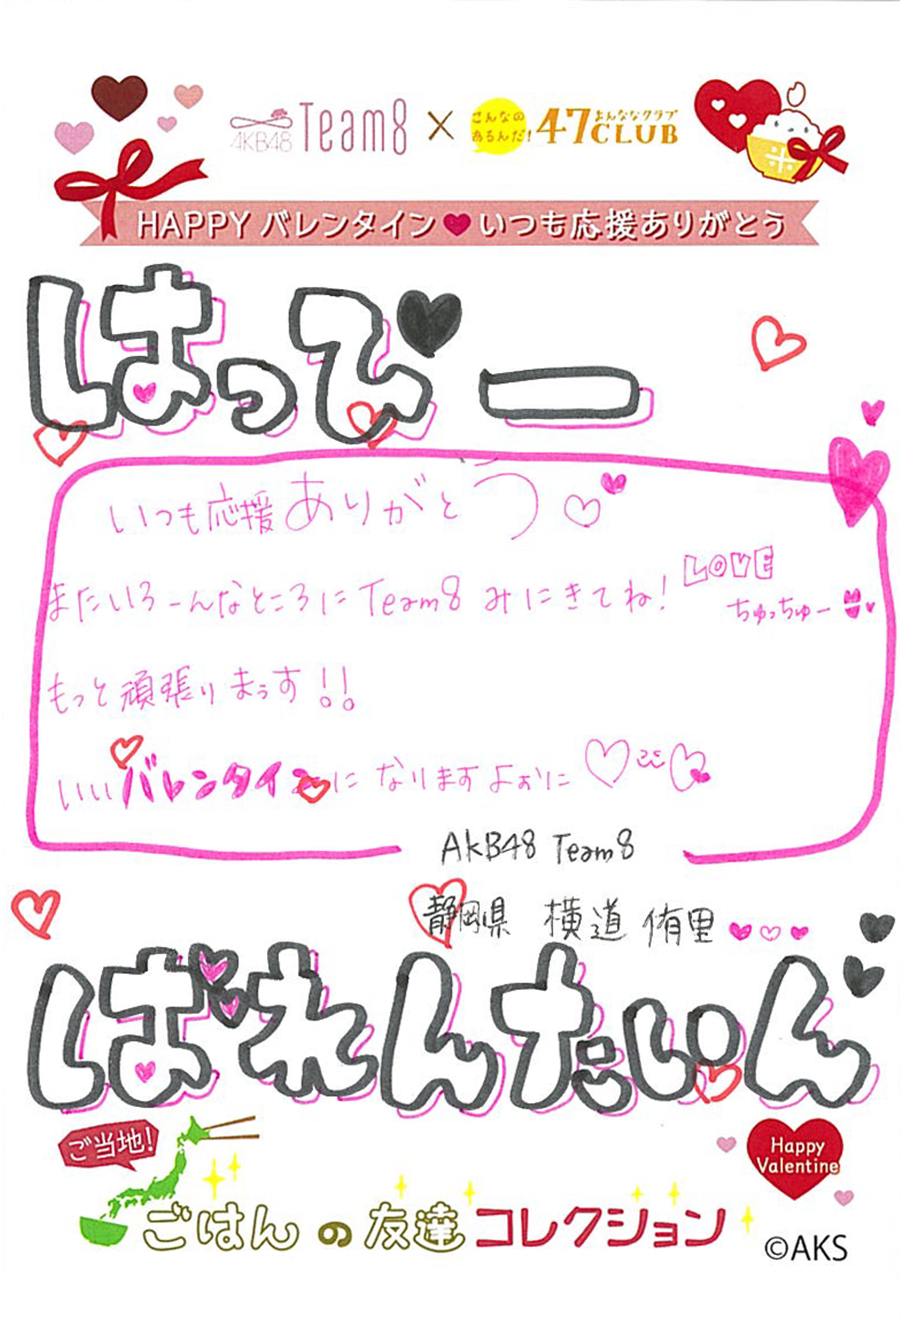 AKB48 Team8 × こんなのあるんだ! 47CLUB よんななクラブ
HAPPY バレンタイン♥いつも応援ありがとう
はっぴー
いつも応援ありがとう♡♥
またいろーんなところにTeam8 みにきてね! LOVE
ちゅっちゅー
もっと頑張りまぅす!!
いいバレンタインになりますよおに♡
AKB48 Team8
静岡県 横道 侑里
ばれんたいん
ご当地!
Happy
Valentine
ごはんの友達コレクション
©AKS